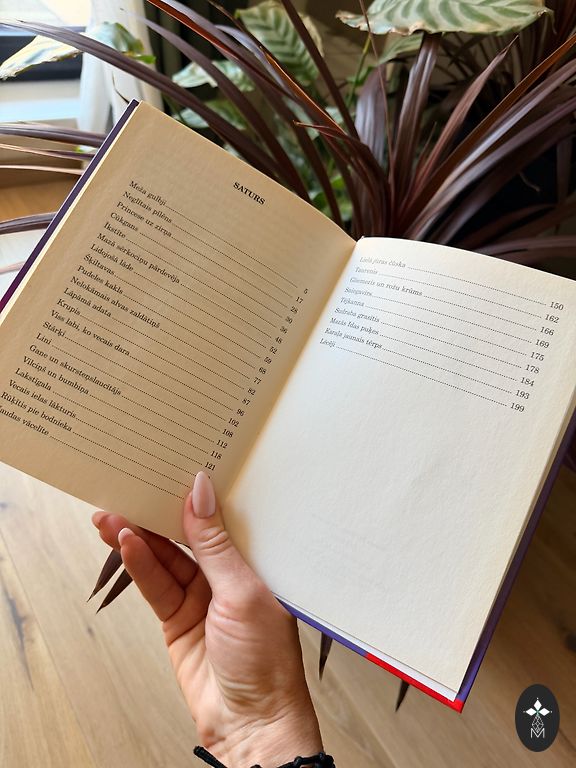 SATURS
Meža gulbji 5
Neglītais pīlēns 17
Princese uz zirņa 28
Cūkgans 30
Īkstīte 36
Mazā sērkociņu pārdevēja 48
Lidojošā lāde 52
Šķiltavas 59
Pudeles kakls 68
Nelokāmais alvas zaldātiņš 77
Lāpāmā adata 82
Krupis 87
Viss labi, ko vecais dara 96
Stārķi 102
Lini 108
Gane un skursteņslaucītājs 112
Vilciņš un bumbiņa 118
Lakstīgala 121
Vecais ielas lākturis
Rūķītis pie bodnieka
vācelīte
Lielā jūras čūska 150
Taurenis 162
Gliemezis un rožu krūms 166
Sniegavīrs 169
Tējkanna 175
Sudraba grasītis 178
Mazās Idas puķes 184
Karaļa jaunais tērps 193
Lēcēji 199
M